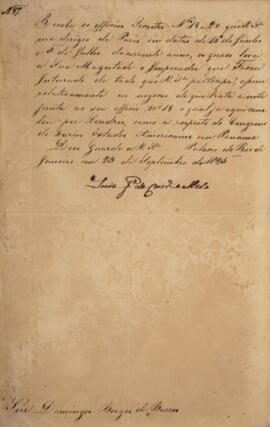 Recebi os officios Secretos Nº 13, e 20 que V. S.
me dirigio de Paris em datas de 15 de Junho
e 6 de Julho do corrente anno, os quaes levei
a Sua Magestade o Imperador que Ficou
Inteirado de tudo que V. Sª participa, assim
relativamente ao negocio de que trata a nota
junta ao seu officio nº 18
por Londres, como a respeito do Congresso
de varios Estados Americanos em Panamá
Deos Guarde a V. Sª. Palacio do Rio de
Janeiro em 23 de Septembro de 1826
Snr. Domingos Borges de Barros